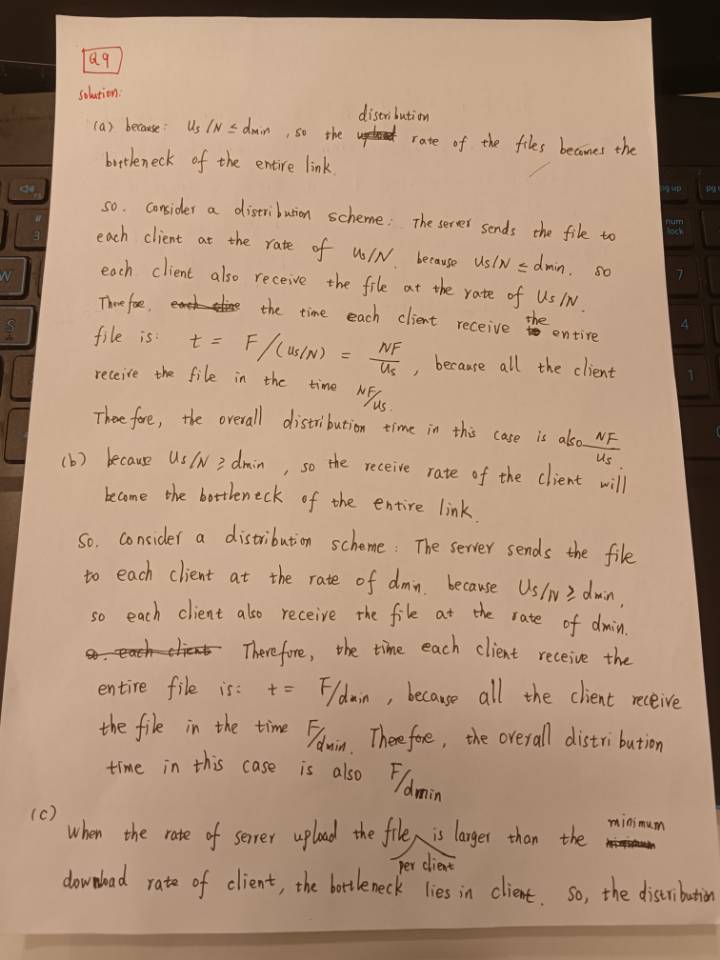 Q9
solution:
(a) because: Us/N ≤ dmin, so the distribution rate of the files becomes the
bottleneck of the entire link.
so. Consider a distribution scheme: The server sends the file to
each client at the rate of Us/N. because Us/N ≤ dmin. so
each client also receive the file at the rate of Us/N.
Therefore, the time each client receive the entire
file is: t = F/(Us/N) = NF/Us, because all the client
receive the file in the time NF/Us.
Therefore, the overall distribution time in this case is also NF/Us.
(b) because Us/N ≥ dmin, so the receive rate of the client will
become the bottleneck of the entire link.
So. Consider a distribution scheme: The server sends the file
to each client at the rate of dmin. because Us/N ≥ dmin,
so each client also receive the file at the rate of dmin.
Therefore, the time each client receive the
entire file is: t = F/dmin, because all the client receive
the file in the time F/dmin. Therefore, the overall distribution
time in this case is also F/dmin
(c)
When the rate of server upload the file per client is larger than the minimum
download rate of client, the bottleneck lies in client. So, the distribution